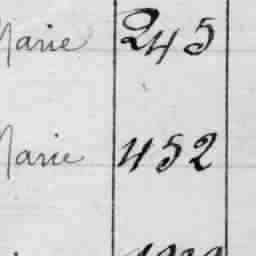 Marie 245
Marie 452